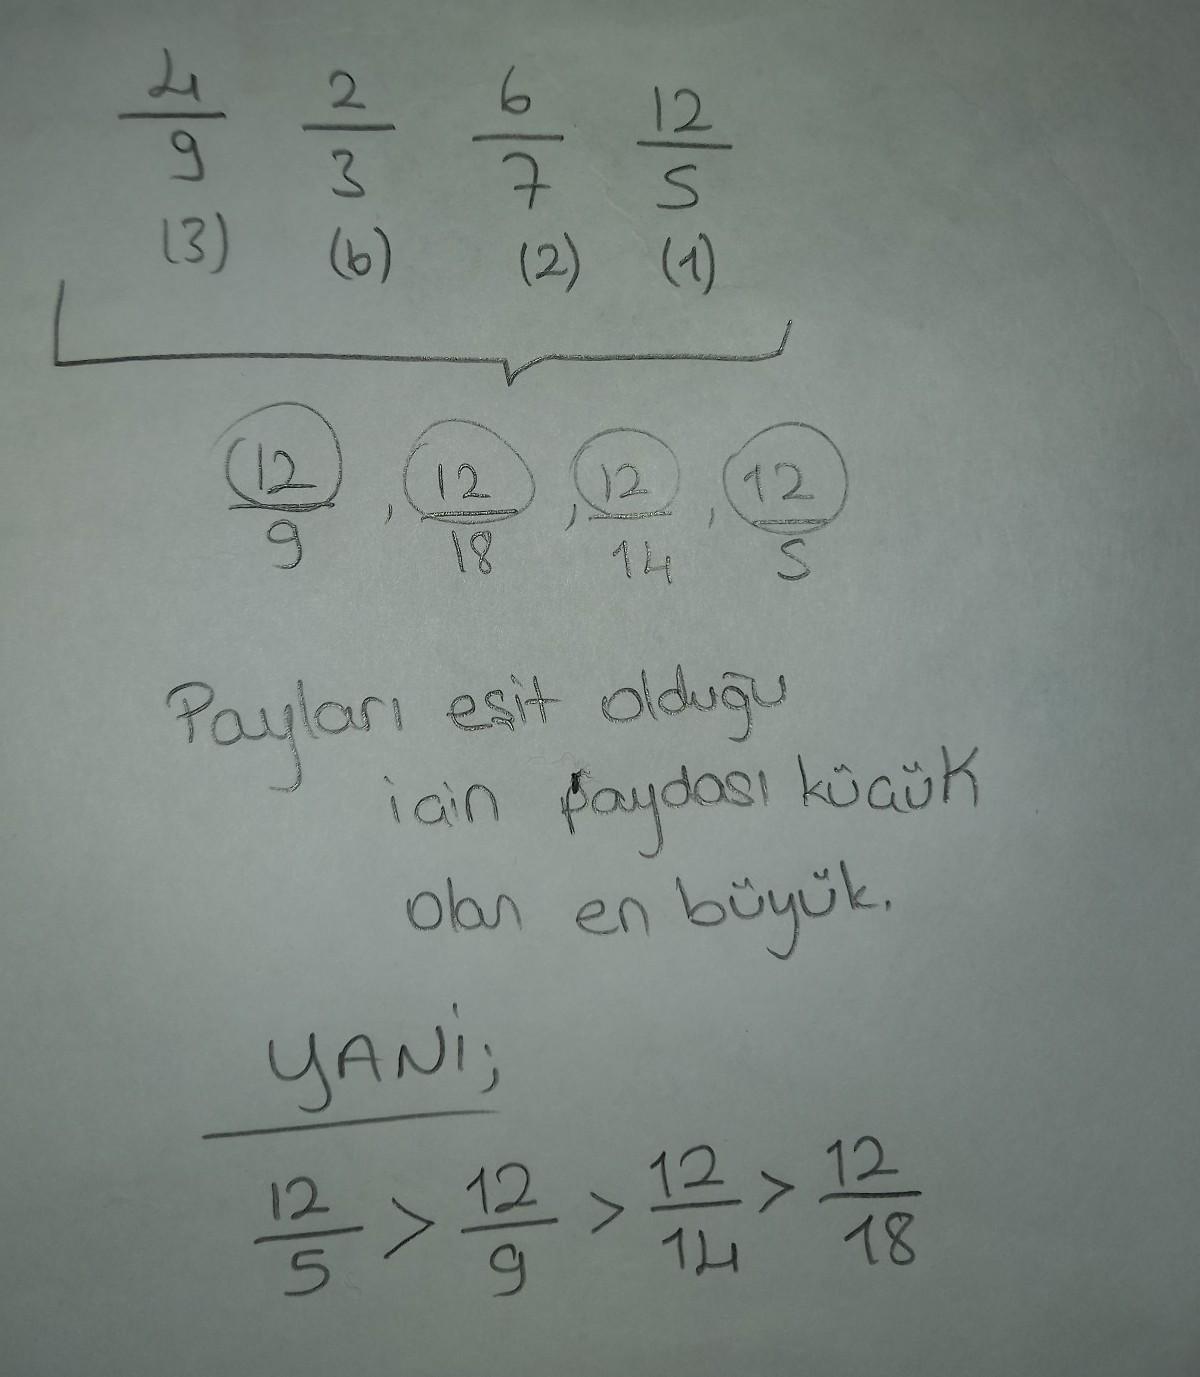 4/9 2/3 6/7 12/5
(3) (6) (2) (1)
12/9 , 12/18 , 12/14 , 12/5
Payları eşit olduğu
için paydası küçük
olan en büyük.
YANİ;
12/5 > 12/9 > 12/14 > 12/18